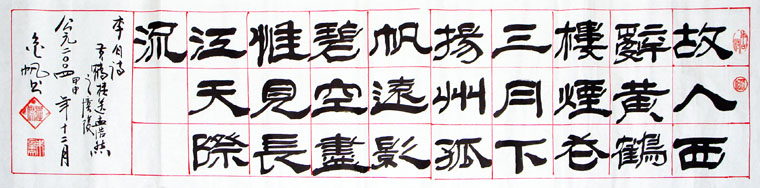 故人西
辭黃鶴
樓煙花
三月下
揚州孤
帆遠影
碧空盡
惟見長
江天際
流
李白詩
黃鶴樓送孟浩然
之廣陵
公元二〇〇四甲申年十二月